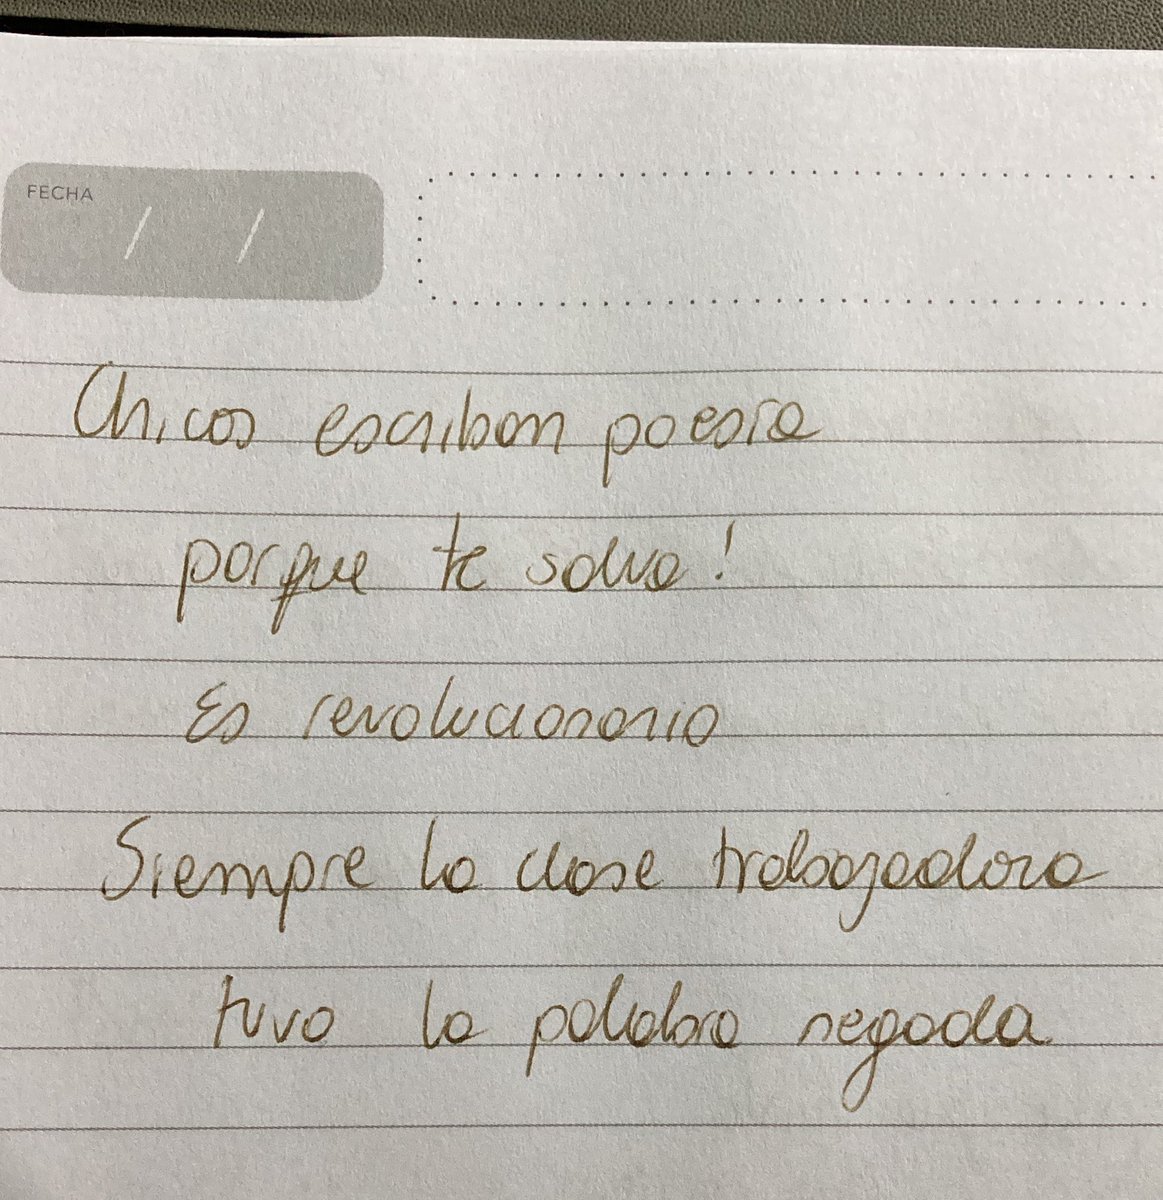 FECHA / /
Chicos escriban poesía
porque te salva!
Es revolucionario
Siempre la clase trabajadora
tuvo la palabra negada